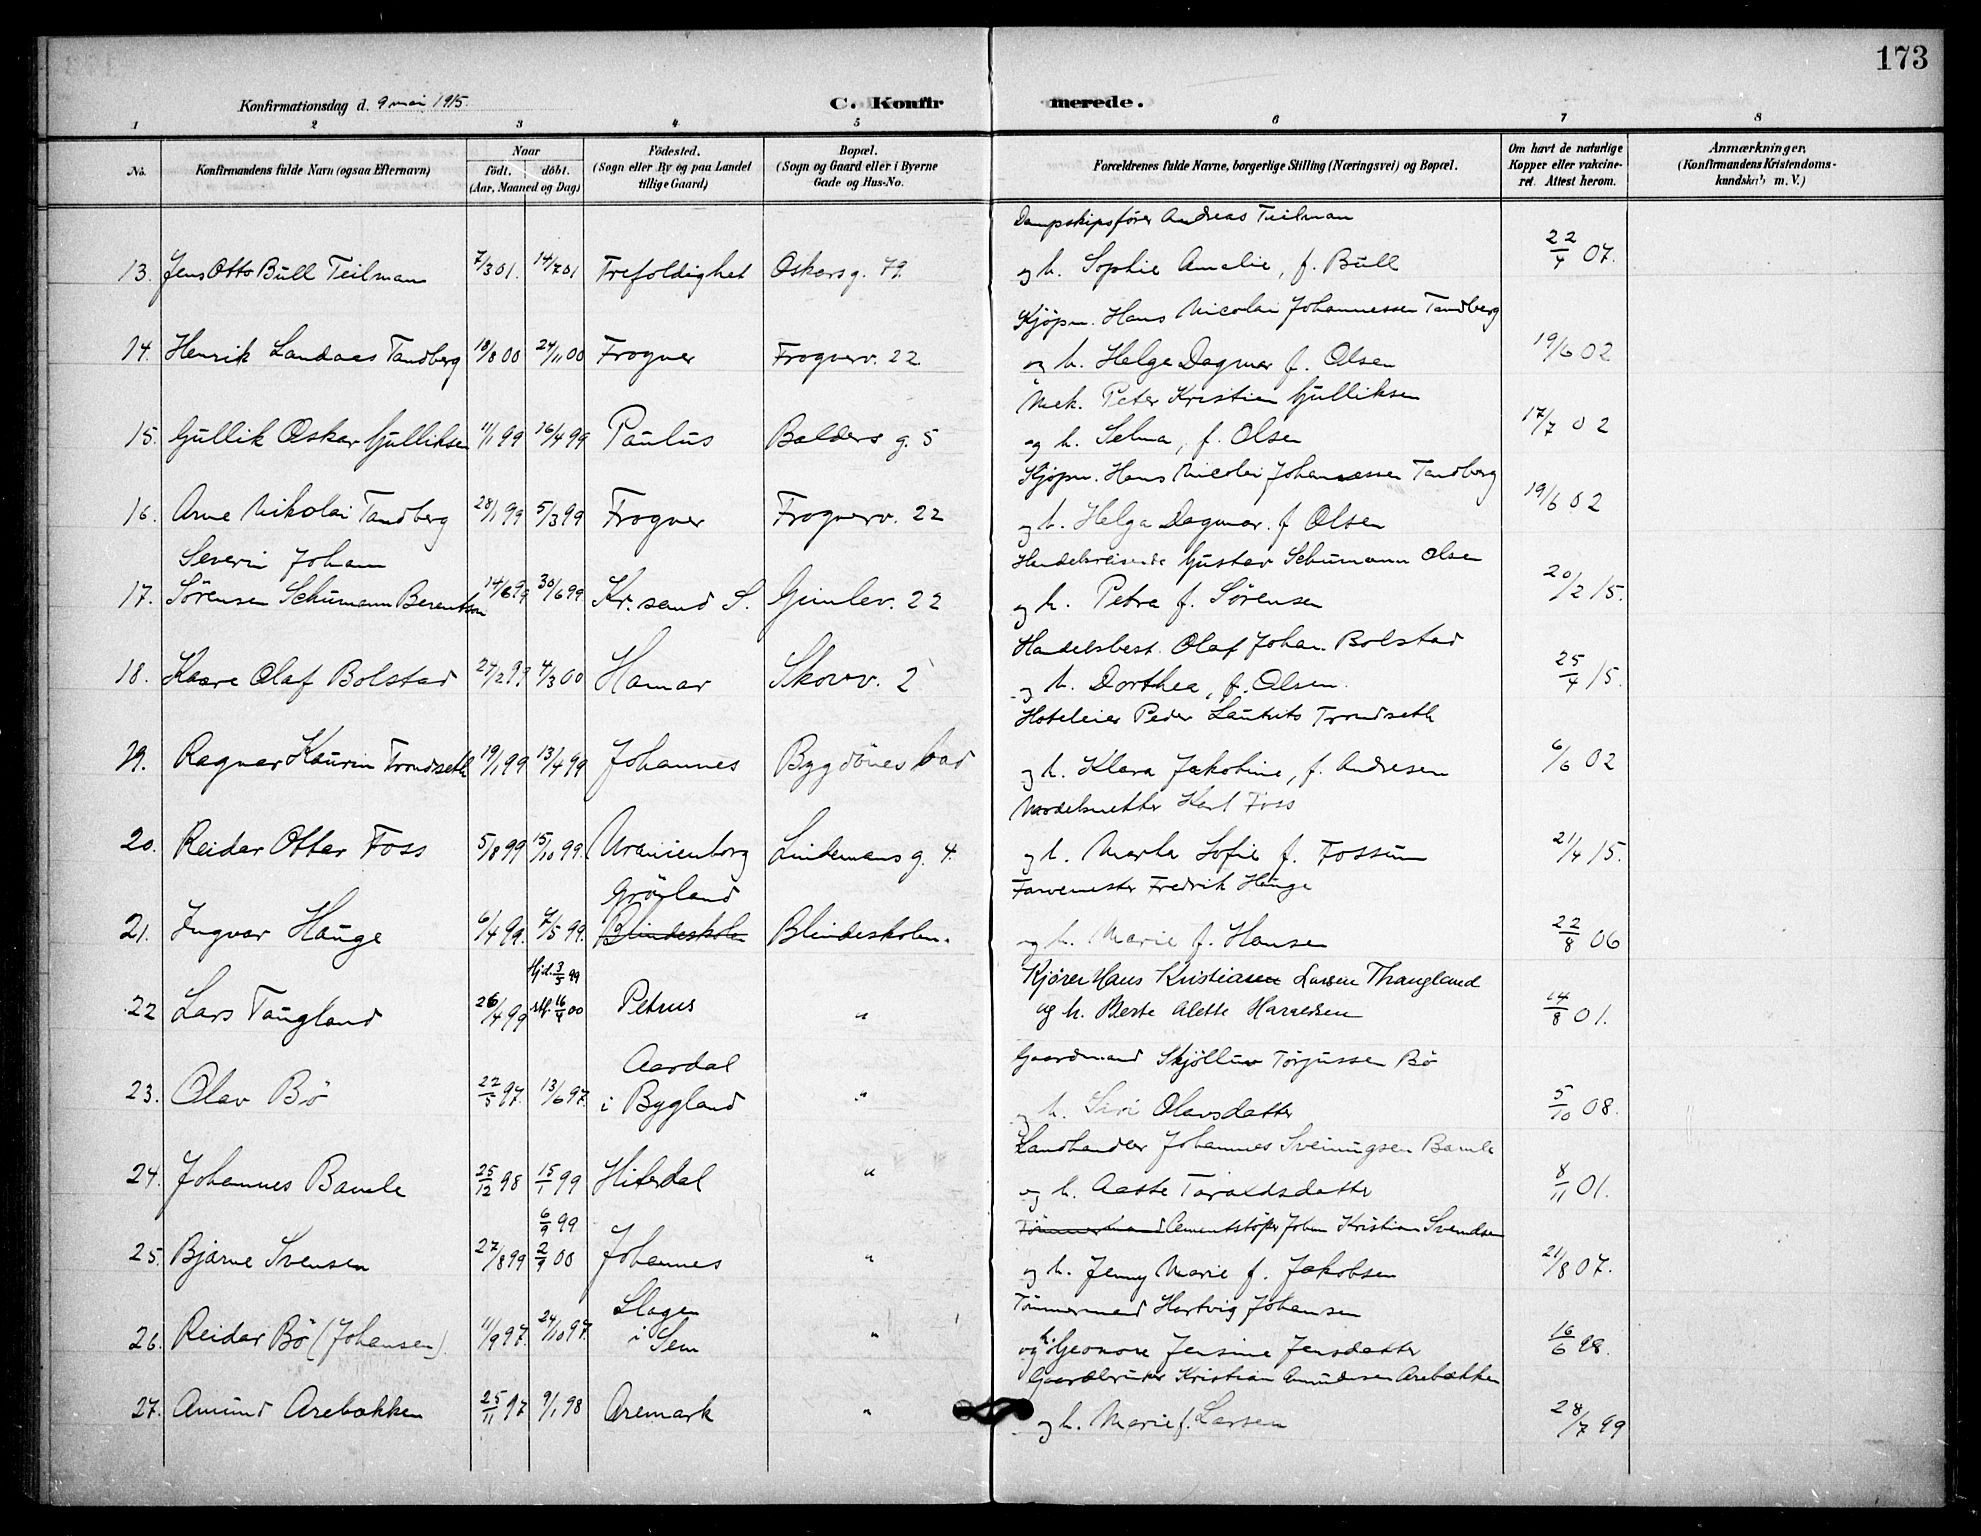 173
Konfirmationsdag d. 9 mai 1915.
C. Konfirmerede.
1 2 3 4 5 6 7 8
No. Konfirmandens fulde Navn (ogsaa Efternavn) Naar födt. döbt. (Aar, Maaned og Dag) Födested. (Sogn eller By og paa Landet tillige Gaard) Bopæl. (Sogn og Gaard eller i Byerne Gade og Hus-No. Forældrenes fulde Navne, borgerlige Stilling (Næringsvei) og Bopæl. Om havt de naturlige Kopper eller vakcineret. Attest herom. Anmærkninger. (Konfirmandens Kristendomskundskab m. V.)
Dampskipsfører Andreas Teilman
13. Jens Otto Bull Teilman 7/3 01. 14/7 01 Trefoldighet Oskarsg. 79. og h. Sophie Amalie, f. Bull 22/4 07.
Kjøpm. Hans Nicolai Johannessen Tandberg
14. Henrik Landaas Tandberg 18/8 00 24/11 00 Frogner Frognerv. 22 og h. Helga Dagmar f. Olsen 19/6 02
Mek. Peter Kristian Gulliksen
15. Gullik Oskar Gulliksen 11/1 99 16/4 99 Paulus Balders g. 5 og h. Selma, f. Olsen 17/7 02
Kjøpm. Hans Nicolai Johannessen Tandberg
16. Arne Nikolai Tandberg 28/1 99 5/3 99 Frogner Frognerv. 22 og h. Helga Dagmar f. Olsen 19/6 02
Severin Johan Handelsreisende Gustav Schumann Olsen
17. Sørensen Schumann Berentsen 14/6 99 30/6 99 Kr.sand S. Gimlev. 22 og h. Petra f. Sørensen 20/2 15.
Handelsbest. Olaf Johan Bolstad
18. Kaare Olaf Bolstad 27/2 99 4/3 00 Hamar Skovv. 2 og h. Dorthea, f. Olsen. 25/4 15.
Hoteleier Peder Lauritz Trondseth
19. Ragnar Kaurin Trondseth 19/1 99 13/4 99 Johannes Bygdönes bad og h. Klara Jakobine, f. Andresen 6/6 02
Modelsnekker Karl Foss
20. Reidar Otter Foss 5/8 99 15/10 99. Uranienborg Lindemans g. 4. og h. Marta Sofie f. Fossum 21/4 15.
Grønland Farvemester Fredrik Hauge
21. Ingvar Hauge 6/4 99. 7/5 99. Blindeskolen Blindeskolen. og h. Marie f. Hansen 22/8 06
Hjd. 3/5 99 Kjører Hans Kristiansen Larsen Thangland
22 Lars Taugland 26/4 99 st. 16/4 00 Petrus " og h. Berte Alette Hansen 14/8 01.
Aardal Gaardmand Skjölluv Torjussen Bø
23. Olav Bö 22/5 97. 13/6 97. i Bygland " og h. Siri Olavsdatter 5/10 08.
Landhandler Johannes Sveinungsen Bamle
24. Johannes Bamle 25/12 98 15/1 99 Hiterdal " og h. Aaste Taraldsdatter 8/11 01.
6/9 99 Tömmermand Cementstöper Johan Kristian Svendsen
25. Bjarne Svensen 27/8 99 2/9 00 Johannes " og h. Jenny Marie f. Jakobsen 21/8 07.
Slagen Tömmermand Hartvig Johansen
26. Reidar Bö (Johansen). 11/9 97. 24/10 97. i Sem " og h. Geonore Jensine Jensdatter 16/6 98.
Gaardbruker Kristian Amundsen Arebækken
27. Amund Arebækken 25/11 97 9/1 98 Aremark " og h. Marie f. Larsen 28/7 99